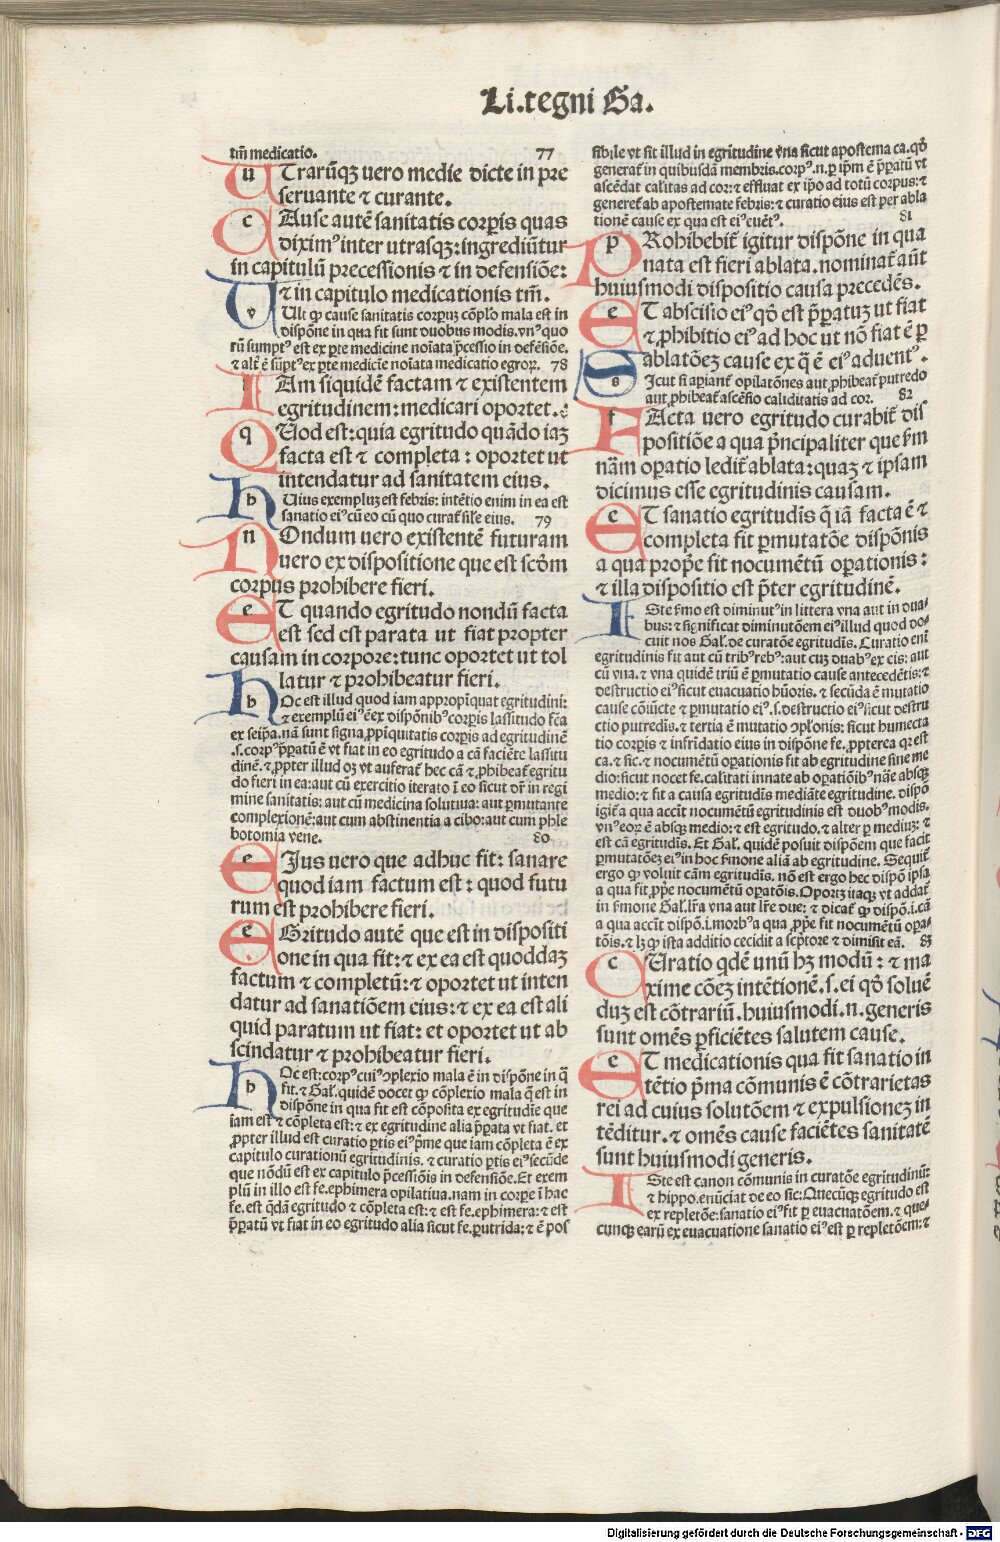 Li.tegni Ga.
tm̄ medicatio. 77
UTrarūqʒ uero medie dicte in pre
seruante ⁊ curante.
CAuse autē sanitatis corꝑis quas
diximꝰ inter utrasqʒ: ingrediūtur
in capitulū precessionis ⁊ in defensiōe:
⁊ in capitulo medicationis tm̄.
VUlt ꝙ cause sanitatis corpuʒ cōpl̄o mala est in
dispōne in qua fit sunt duobus modis. vnꝰ quo
rū sumptꝰ est ex ꝑte medicine noīata p̄cessio in defēsiōe.
⁊ altꝰ ē sūptꝰ ex ꝑte medicīe noīata medicatio egroꝝ. 78
IAm siquidē factam ⁊ existentem
egritudinem: medicari oportet.
QUod est: quia egritudo quādo iaʒ
facta est ⁊ completa: oportet ut
intendatur ad sanitatem eius.
HUius exempluʒ est febris: intētio enim in ea est
sanatio eiꝰ cū eo cū quo curat̄ sil̄e eius. 79
NOndum uero existentē futuram
uero ex dispositione que est scd̄m
corpus prohibere fieri.
ET quando egritudo nondū facta
est sed est parata ut fiat propter
causam in corpore: tunc oportet ut tol
latur ⁊ prohibeatur fieri.
HOc est illud quod iam appropīquat egritudini:
⁊ exemplū eiꝰ ē ex dispōnibꝰ corꝑis lassitudo fc̄a
ex seip̄a. nā sunt signa ꝓpīquitatis corꝑis ad egritudinē
.s. corpꝰ p̄ꝑatū ē vt fiat in eo egritudo a cā faciēte lassitu
dinē. ⁊ ꝓpter illud oʒ vt auferat̄ hec cā ⁊ ꝓhibeat̄ egritu
do fieri in ea: aut cū exercitio iterato ī eo sicut dr̄ in regi
mine sanitatis: aut cū medicina solutiua: aut ꝑmutante
complexionē: aut cum abstinentia a cibo: aut cum phle
botomia vene. 80
EIus uero que adhuc fit: sanare
quod iam factum est: quod futu
rum est prohibere fieri.
EGritudo autē que est in dispositi
one in qua fit: ⁊ ex ea est quoddaʒ
factum ⁊ completū: ⁊ oportet ut inten
datur ad sanatiōem eius: ⁊ ex ea est ali
quid paratum ut fiat: et oportet ut ab
scindatur ⁊ prohibeatur fieri.
HOc est: corpꝰ cuiꝰ ↄplexio mala ē in dispōne in q̄
fit. ⁊ Gal̄. quidē docet ꝙ cōplexio mala q̄ est in
dispōne in qua fit est cōposita ex egritudīe que
iam est ⁊ cōpleta est: ⁊ ex egritudine alia p̄ꝑata vt fiat. et
ꝓpter illud est curatio ꝑtis eiꝰ p̄me que iam cōpleta ē ex
capitulo curationū egritudinis. ⁊ curatio ꝑtis eiꝰ secūde
que nōdū est ex capitulo p̄cessiōis in defensiōe. Et exem
plū in illo est fe. ephimera opilatiua. nam in corꝑe ī hac
fe. est q̄dā egritudo ⁊ cōpleta est: ⁊ est fe. ephimera: ⁊ est
p̄ꝑatū vt fiat in eo egritudo alia sicut fe. putrida: ⁊ ē pos
sibile vt sit illud in egritudine vna sicut apostema ca. qd̄
generat̄ in quibusdā membris. corpꝰ. n. ꝑ ip̄m ē p̄ꝑatū vt
ascēdat calitas ad cor: ⁊ effluat ex ip̄o ad totū corpus: ⁊
generet̄ ab apostemate febris: ⁊ curatio eius est per abla
tionē cause ex qua est eiꝰ euētꝰ. 81
PRohibebit̄ igitur dispōne in qua
nata est fieri ablata. nominat̄ aūt
huiusmodi dispositio causa precedēs.
ET abscisio eiꝰ qd̄ est p̄ꝑatuʒ ut fiat
⁊ ꝓhibitio eiꝰ ad hoc ut nō fiat ē ꝑ
ablatōeʒ cause ex q̄ ē eiꝰ aduentꝰ.
SIcut si aꝑiant̄ opilatōnes aut ꝓhibeat̄ putredo
aut ꝓhibeat̄ ascēsio caliditatis ad cor. 82
FActa uero egritudo curabit̄ dis
positiōe a qua p̄ncipaliter que ẜm
nām oꝑatio ledit̄ ablata: quaʒ ⁊ ipsam
dicimus esse egritudinis causam.
ET sanatio egritudīs q̄ iā facta ē ⁊
completa fit ꝑmutatōe dispōnis
a qua prop̄e fit nocumētū oꝑationis:
⁊ illa dispositio est p̄ter egritudinē.
ISte ẜmo est diminutꝰ in littera vna aut in dua
bus: ⁊ significat diminutōem eiꝰ illud quod do
cuit nos Gal̄. de curatōe egritudīs. Curatio enī
egritudinis fit aut cū tribꝰ rebꝰ: aut cuʒ duabꝰ ex eis: aut
cū vna. ⁊ vna quidē triū ē ꝑmutatio cause antecedētis: ⁊
destructio eiꝰ sicut euacuatio hūoris. ⁊ secūda ē mutatio
cause cōiūcte ⁊ ꝑmutatio eiꝰ. s. destructio eiꝰ sicut destru
ctio putredīs. ⁊ tertia ē mutatio ↄplōnis: sicut humecta
tio corꝑis ⁊ infrīdatio eius in dispōne fe. ꝓpterea qꝛ est
ca. ⁊ sic. ⁊ nocumētū oꝑationis fit ab egritudine sine me
dio: sicut nocet fe. calitati innate ab oꝑatiōibꝰ nāe absqʒ
medio: ⁊ fit a causa egritudīs mediāte egritudine. dispō
igit̄ a qua accīt nocumētū egritudinis est duobꝰ modis.
vnꝰ eoꝝ ē absqʒ medio: ⁊ est egritudo. ⁊ alter ꝑ mediuʒ: ⁊
est cā egritudīs. Et Gal̄. quidē posuit dispōem que facit
ꝑmutatōeʒ eiꝰ in hoc ẜmone aliā ab egritudine. Sequit̄
ergo ꝙ voluit cām egritudīs. nō est ergo hec dispō ipsa
a qua fit ꝓp̄e nocumētū oꝑatōis. Oportʒ itaqʒ vt addat̄
in ẜmone Gal̄. l̄ra vna aut l̄re due: ⁊ dicat̄ ꝙ dispō. i. cā
a qua accīt dispō. i. morbꝰ a qua ꝓp̄e fit nocumētū oꝑa
tōis. ⁊ lʒ ꝙ ista additio cecidit a sc̄ptore ⁊ dimisit eā. 83
CUratio qdē unū hʒ modū: ⁊ ma
xime cōeʒ intētionē. s. ei qd̄ soluē
duʒ est cōtrariū. huiusmodi. n. generis
sunt omēs ꝑficiētes salutem cause.
ET medicationis qua fit sanatio in
tētio p̄ma cōmunis ē cōtrarietas
rei ad cuius solutōem ⁊ expulsioneʒ in
tēditur. ⁊ omēs cause faciētes sanitatē
sunt huiusmodi generis.
ISte est canon cōmunis in curatōe egritudinū:
⁊ hippo. enūciat de eo sic: Quecūqʒ egritudo est
ex repletōe: sanatio eiꝰ fit ꝑ euacuatōem. ⁊ que
cunqʒ earū ex euacuatione sanatio eiꝰ est ꝑ repletōem: ⁊
Digitalisierung gefördert durch die Deutsche Forschungsgemeinschaft - DFG